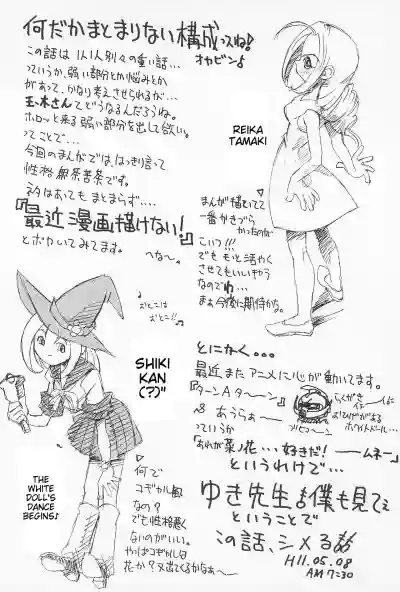 何だかまとまりない構成ってね!
オヤビン♪
この話は1人1人別々の重い話…
っていうか、弱い部分とか悩みとか
があって、かなり考えさせられるが…
玉木さんてどうなるんだろうね。
ホロ〜と来る弱い部分を出して欲しい。
ってことで…
今回のまんがでは、はっきり言って
性格
ネタはあってもまとまらず…
『最近漫画描けない!』
とボカいてみてます。
へな〜
REIKA
TAMAKI
まんが描いてて
一番かきづら
かったのが
こいつ!!!
でももっと活やく
させてもいいキャラ
なのでね…
まぁ今後に期待かな。
おとこは
おとこ!!
SHIKI
KAN
(?)"
THE
WHITE
DOLL'S
DANCE
BEGINS♪
何で
コギャル風
なの?
でも性格悪く
ないのがいい。
やっぱコギャルは
花か?又出てくるかなぁ〜
とにかく…
最近またアニメに心が動いてます。
『ターンAターン』
らくがき
おひげがある
ホワイトドール…
あうらぁ〜
っていうか
「あれが菜ノ花…好きだ!——ムネー」
というわけで…
ゆき先生も僕も見てぇ
ということで
この話、シメる
H11.05.08
AM7:30